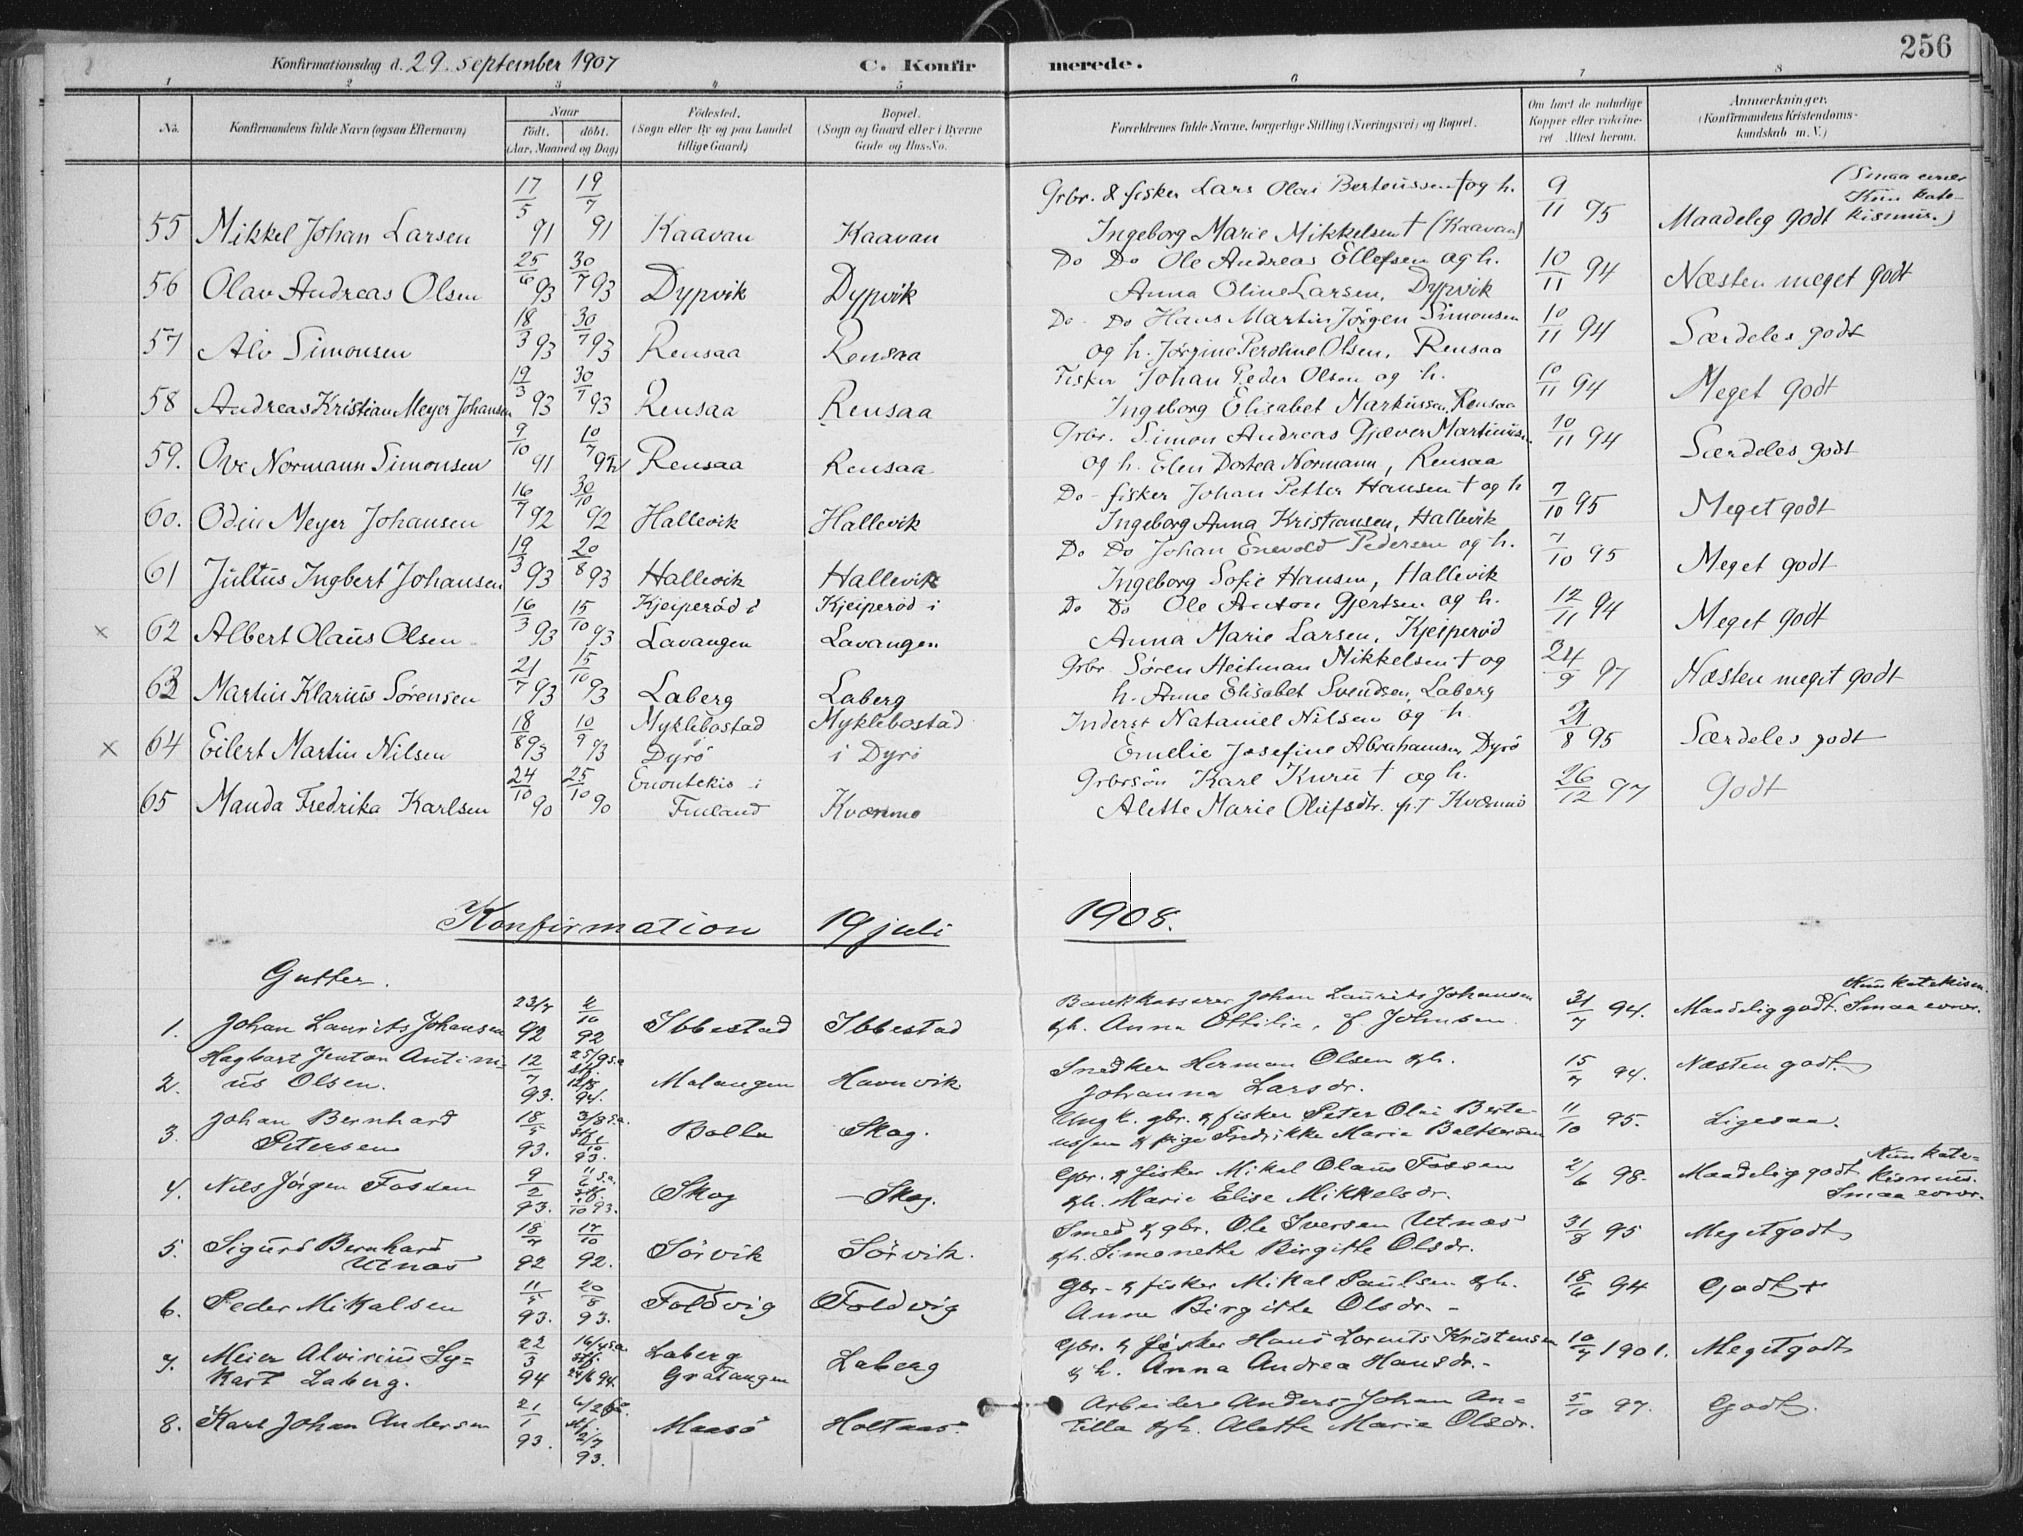 256
Konfirmationsdag d. 29. september 1907 C. Konfirmerede.
1 2 3 4 5 6 7 8
No. Konfirmandens fulde Navn (ogsaa Efternavn) Naar födt. döbt. (Aar, Maaned og Dag) Födested. (Sogn eller By og paa Landet tillige Gaard) Bopæl. (Sogn og Gaard eller i Byerne Gade og Hus-No. Forældrenes fulde Navne, borgerlige Stilling (Næringsvei) og Bopæl. Om havt de naturlige Kopper eller vakcineret Attest herom. Anmærkninger. (Konfirmandens Kristendomskundskab m. V.)
55 Mikkel Johan Larsen 17/5 91 19/7 91 Kaavan Kaavan Grbr. & fisker Lars Olai Berteussen † og h. Ingeborg Marie Mikkelsen † (Kaavan) 9/11 95 Maadelig godt (Smaa evner Kun katekismus.)
56 Olav Andreas Olsen 25/6 93 30/7 93 Dypvik Dypvik Do Do Ole Andreas Ellefsen og h. Anna Oline Larsen, Dypvik 10/11 94 Næsten meget godt
57 Alv Simonsen 18/3 93 30/7 93 Rensaa Rensaa Do Do Hans Martin Jørgen Simonsen og h. Jørgine Perohne Olsen, Rensaa 10/11 94 Særdeles godt
58 Andreas Kristian Meyer Johansen 19/3 93 30/7 93 Rensaa Rensaa Fisker Johan Peder Olsen og h. Ingeborg Elisabet Markussen, Rensaa 10/11 94 Meget godt
59. Ove Normann Simonsen 9/10 91 10/7 92 Rensaa Rensaa Grbr. Simon Andreas Gjæver Martinusen og h. Elen Dortea Normann, Rensaa 10/11 94 Særdeles godt
60. Odin Meyer Johansen 16/7 92 30/10 92 Hallevik Hallevik Do - fisker Johan Petter Hansen † og h Ingeborg Anna Kristiansen, Hallevik 7/10 95 Meget godt
61 Julius Ingbert Johansen 19/3 93 20/8 93 Hallevik Hallevik Do Do Johan Enevold Pedersen og h. Ingeborg Sofie Hansen, Hallevik 7/10 95 Meget godt
× 62 Albert Olaus Olsen 16/3 93 15/10 93 Kjeiperød i Lavangen Kjeiperød i Lavangen Do Do Ole Anton Gjertsen og h. Anna Marie Larsen, Kjeiperød 12/11 94 Meget godt
63 Martin Klarius Sørensen 21/7 93 15/10 93 Laberg Laberg Grbr. Søren Heitman Mikkelsen † og h. Anne Elisabet Svendsen, Laberg 24/9 97 Næsten meget godt
× 64 Eilert Martin Nilsen 18/8 93 10/9 93 Myklebostad Dyrø Myklebostad i Dyrø Inderst Nataniel Nilsen og h. Emelie Josefine Abrahamsen Dyrø 21/8 95 Særdeles godt
65 Manda Fredrika Karlsen 24/10 90 25/10 90 Enontekis i Finland Kværnmo Grbrsøn Karl Kuru † og h. Alette Marie Olufsdtr. p.t Kværnmo 26/12 97 Godt
Konfirmation 19 juli 1908.
Gutter.
1. Johan Laurits Johansen 23/7 92 2/10 92 Ibbestad Ibbestad Bankkasserer Johan Laurits Johansen & h. Anna Ottilie, f Johnsen 31/7 94. Maadelig godt. Kun katekism. Smaa evner.
2. Hagbart Jenton Antinius Olsen. 12/7 93. 94. Malangen Havnvik Snedker Herman Olsen & h. Johanna Larsdr. 15/7 94. Næsten godt.
3. Johan Bernhard Petersen 18/5 93. 93. Bolla Skog. Ung k. gbr. & fisker Peter Olai Berteussen & pige Fredrikke Marie Baltsersen 11/10 95. Ligesaa.
4. Nils Jörgen Fossen 9/2 93. 93. Skog Skog. Gbr. & fisker Mikal Olaus Fossen & h. Marie Elise Mikkelsdr. 2/6 98. Maadelig godt Kun katekismus. Smaa evner.
5. Sigurd Bernhard Utnæs 18/7 92 17/10 92. Sörvik Sörvik. Smed & gbr. Ole Iversen Utnæs & h. Simonette Birgitte Olsdr. 31/8 95 Meget godt
6. Peder Mikalsen 11/5 93. 20/8 93. Foldvig Foldvig Gbr. & fisker Mikal Paulsen & h. Anne Birgitte Olsdr. 18/6 94 Godt +
7. Meier Alvirius Sykart Laberg. 22/3 94 94. Laberg Gratangen Laberg Gbr. & fisker Hans Lornts Kristensen & h. Anna Andrea Hansdr. 10/7 1901. Meget godt
8. Karl Johan Andersen 21/1 93. 2/7 93. Maasö Holtaas Arbeider Anders Johan Antilla & h. Alette Marie Olsdr. 5/10 97. Godt.